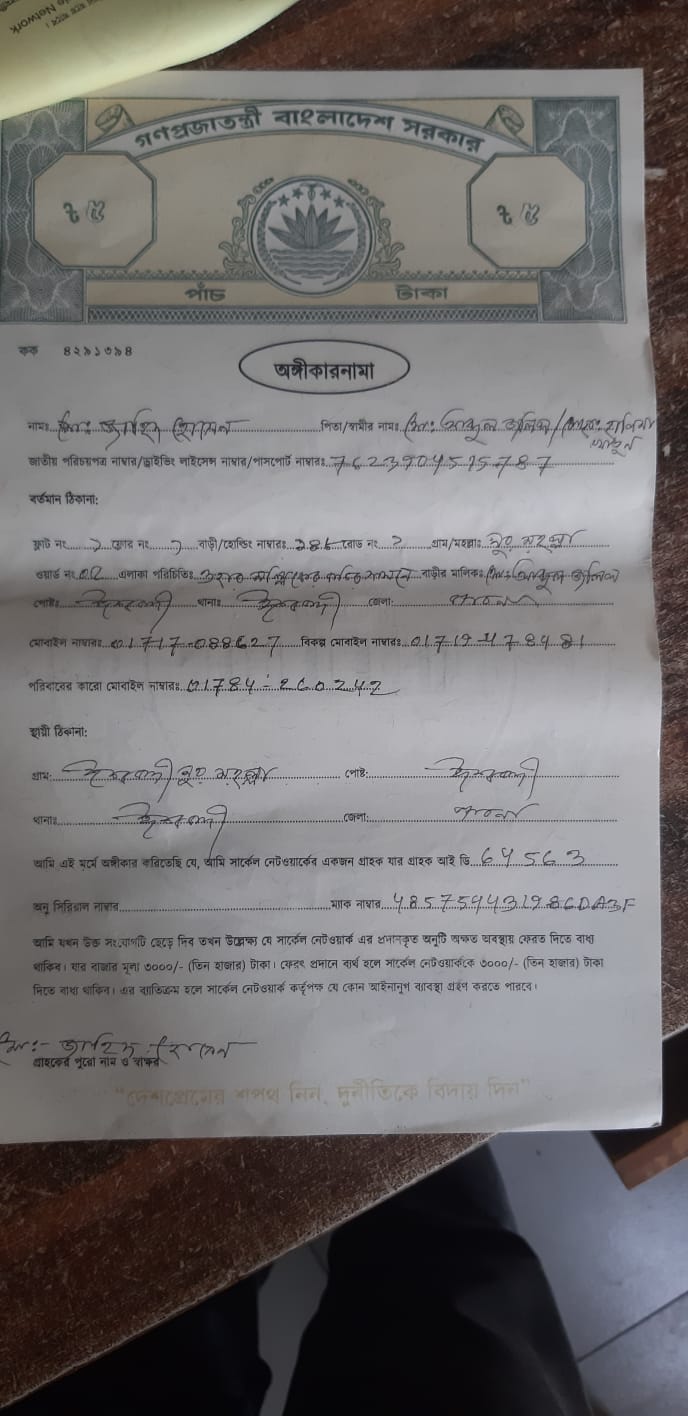 গণপ্রজাতন্ত্রী বাংলাদেশ সরকার
৳ ৫ ৳ ৫
পাঁচ টাকা
কক ৪২৯১৩৯৪
অঙ্গীকারনামা
নামঃ মোঃ জাহিদ হোসেন পিতা/স্বামীর নামঃ মোঃ আব্দুল
জাতীয় পরিচয়পত্র নাম্বার/ড্রাইভিং লাইসেন্স নাম্বার/পাসপোর্ট নাম্বারঃ 7623904515787
বর্তমান ঠিকানা:
ফ্লাট নং ফ্লোর নং বাড়ী/হোল্ডিং নাম্বারঃ রোড নং গ্রাম/মহল্লাঃ নূর মহল্লা
ওয়ার্ড নং 02 এলাকা পরিচিতিঃ বাড়ীর মালিকঃ মোঃ আব্দুল
পোষ্টঃ ঈশ্বরদী থানাঃ ঈশ্বরদী জেলা: পাবনা
মোবাইল নাম্বারঃ 01717-088627 বিকল্প মোবাইল নাম্বারঃ 01719-478481
পরিবারের কারো মোবাইল নাম্বারঃ 01784-260242
স্থায়ী ঠিকানা:
গ্রাম: ঈশ্বরদী নূর মহল্লা পোষ্ট: ঈশ্বরদী
থানাঃ ঈশ্বরদী জেলা: পাবনা
আমি এই মর্মে অঙ্গীকার করিতেছি যে, আমি সার্কেল নেটওয়ার্কের একজন গ্রাহক যার গ্রাহক আই ডি 64563
অনু সিরিয়াল নাম্বার ম্যাক নাম্বার 485754431986DA3F
আমি যখন উক্ত সংযোগটি ছেড়ে দিব তখন উল্লেক্ষ্য যে সার্কেল নেটওয়ার্ক এর প্রদানকৃত অনুটি অক্ষত অবস্থায় ফেরত দিতে বাধ্য
থাকিব। যার বাজার মূল্য ৩০০০/- (তিন হাজার) টাকা। ফেরৎ প্রদানে ব্যর্থ হলে সার্কেল নেটওয়ার্ককে ৩০০০/- (তিন হাজার) টাকা
দিতে বাধ্য থাকিব। এর ব্যাতিক্রম হলে সার্কেল নেটওয়ার্ক কর্তৃপক্ষ যে কোন আইনানুগ ব্যবস্থা গ্রহণ করতে পারবে।
মোঃ- জাহিদ হোসেন
গ্রাহকের পুরো নাম ও স্বাক্ষর
"দেশপ্রেমের শপথ নিন, দুর্নীতিকে বিদায় দিন"